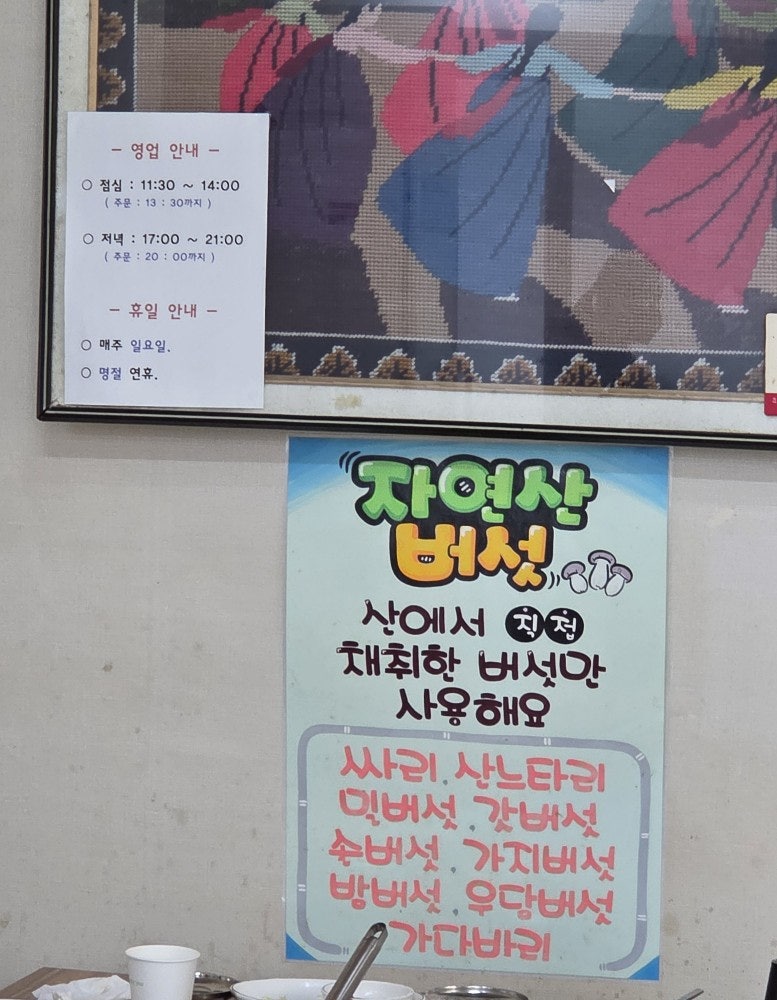 - 영업 안내 -
○ 점심 : 11:30 ~ 14:00
( 주문 : 13 : 30까지 )
○ 저녁 : 17:00 ~ 21:00
( 주문 : 20 : 00까지 )
- 휴일 안내 -
○ 매주 일요일.
○ 명절 연휴.
자연산
버섯
산에서 직접
채취한 버섯만
사용해요
싸리. 산느타리
밀버섯. 갓버섯
솔버섯. 가지버섯
방버섯. 우당버섯
가다바리